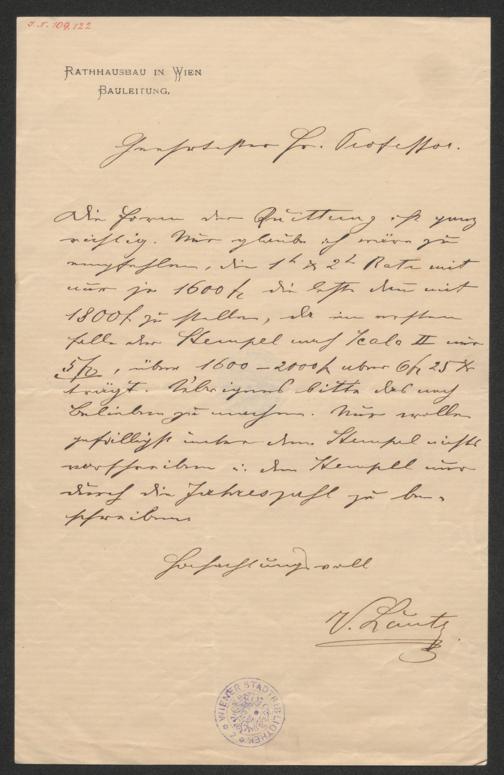 J.N. 109.122
RATHHAUSBAU IN WIEN
BAULEITUNG.
Geehrtester Hr. Professor.
Die Form der Quittung ist ganz
richtig. Nur glaube ich wäre zu
empfehlen, die 1te & 2te Rate mit
nur je 1600 f, die letzte dann mit
1800 f. zu stellen, da im ersten
Falle der Stempel nach Scala II nur
5 f, über 1600 – 2000 f aber 6 f 25 Xr
trägt. Übrigens bitte das nach
Belieben zu machen. Nur wollen
gefälligst unter dem Stempel nichts
vorschreiben u. den Stempel nur
durch die Jahreszahl zu be-
schreiben
Hochachtungsvoll
V. Lüntz
WIENER STADTBIBLIOTHEK